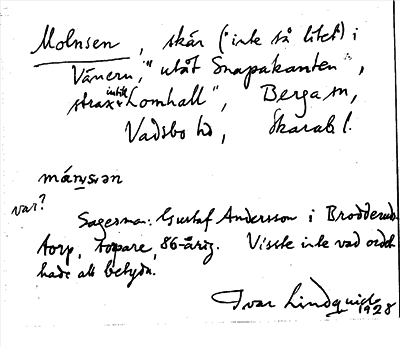 Molnsen, skär ("inte så litet") i
Vänern, "utåt Snapakanten",
strax intill Lomhall", Berga sn,
Vadsbo hd, Skarab. l.
månsen
var?
Sagesman: Gustaf Andersson i Brodderuds
torp, torpare, 86-årig. Visste inte vad ordet
hade att betyda.
Ivar Lindquist
1928